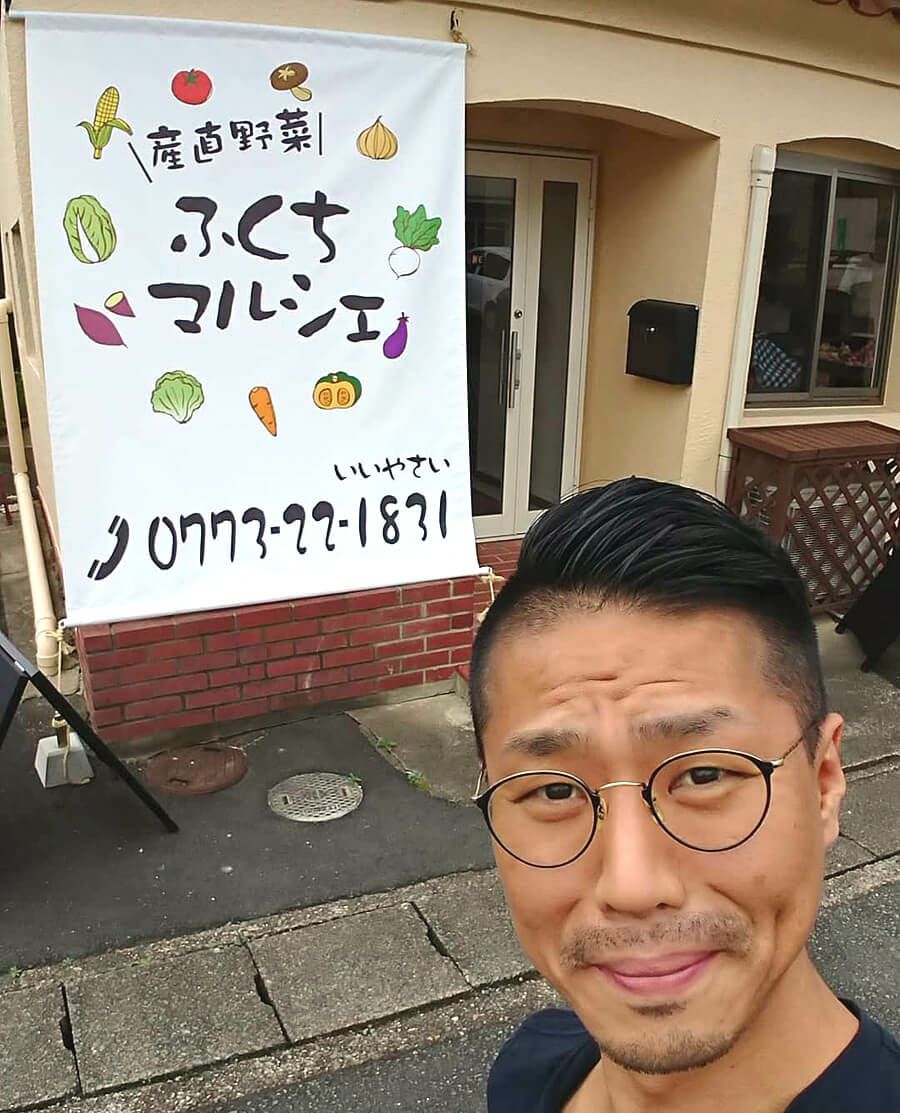 産直野菜
ふくち
マルシェ
いいやさい
0773-22-1831